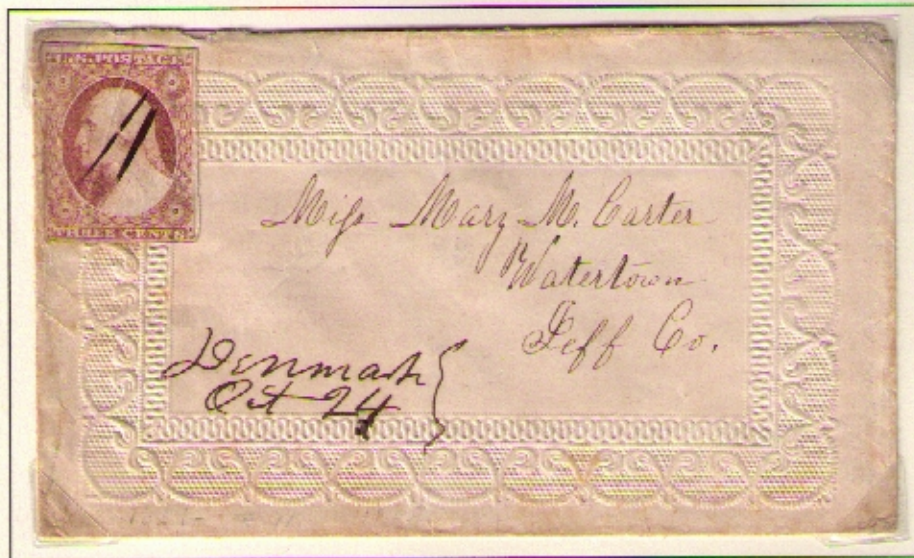 U.S. POSTAGE
THREE CENTS
Miſs Mary M. Carter
Watertown
Jeff Co.
Denmark
Oct 24